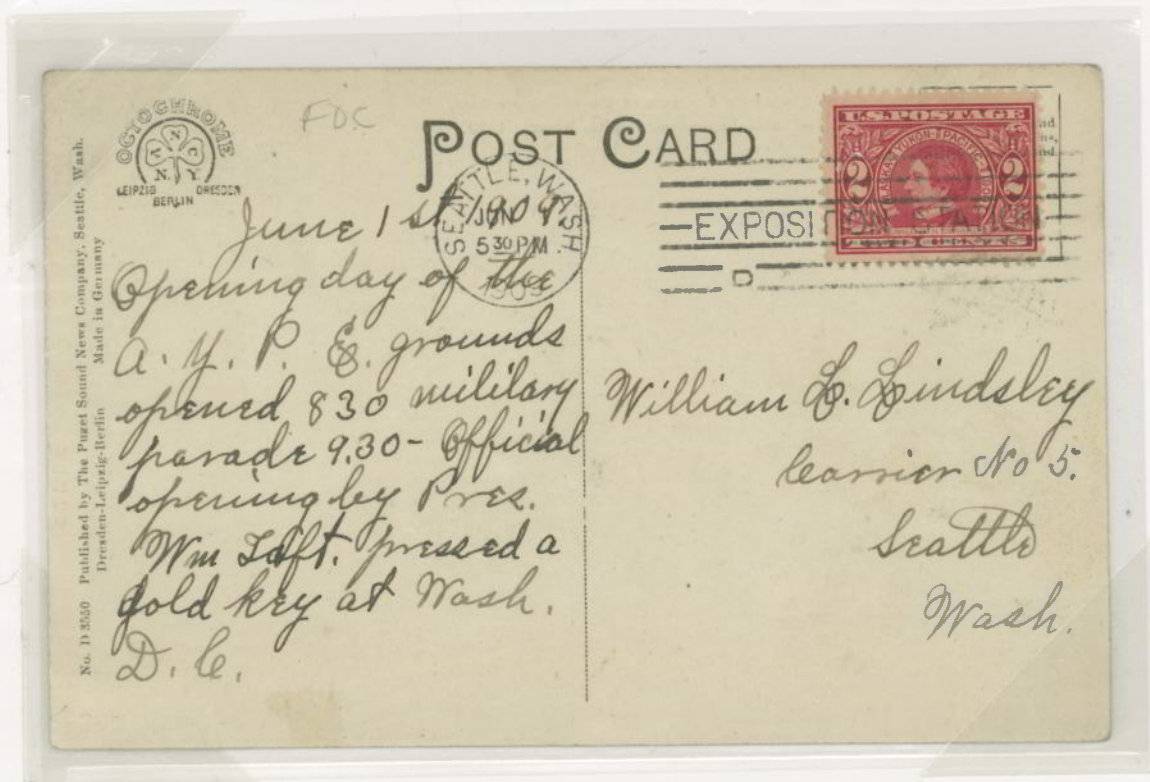 No. D 3550 Published by The Puget Sound News Company, Seattle, Wash.
Dresden-Leipzig-Berlin Made in Germany
OCTOCHROME
A N C
N. Y.
LEIPZIG DRESDEN
BERLIN
FDC
POST CARD
SEATTLE, WASH.
JUN 1
5 30 PM
1909
EXPOSITION STATION
D
U.S. POSTAGE
ALASKA-YUKON-PACIFIC-1909
2 2
TWO CENTS
June 1st, 1909.
Opening day of the
A. Y. P. E. grounds
opened 830 military
parade 9.30 - Official
opening by Pres.
Wm Taft. pressed a
gold key at Wash.
D. C.
William L. Lindsley
Carrier No 5.
Seattle
Wash.